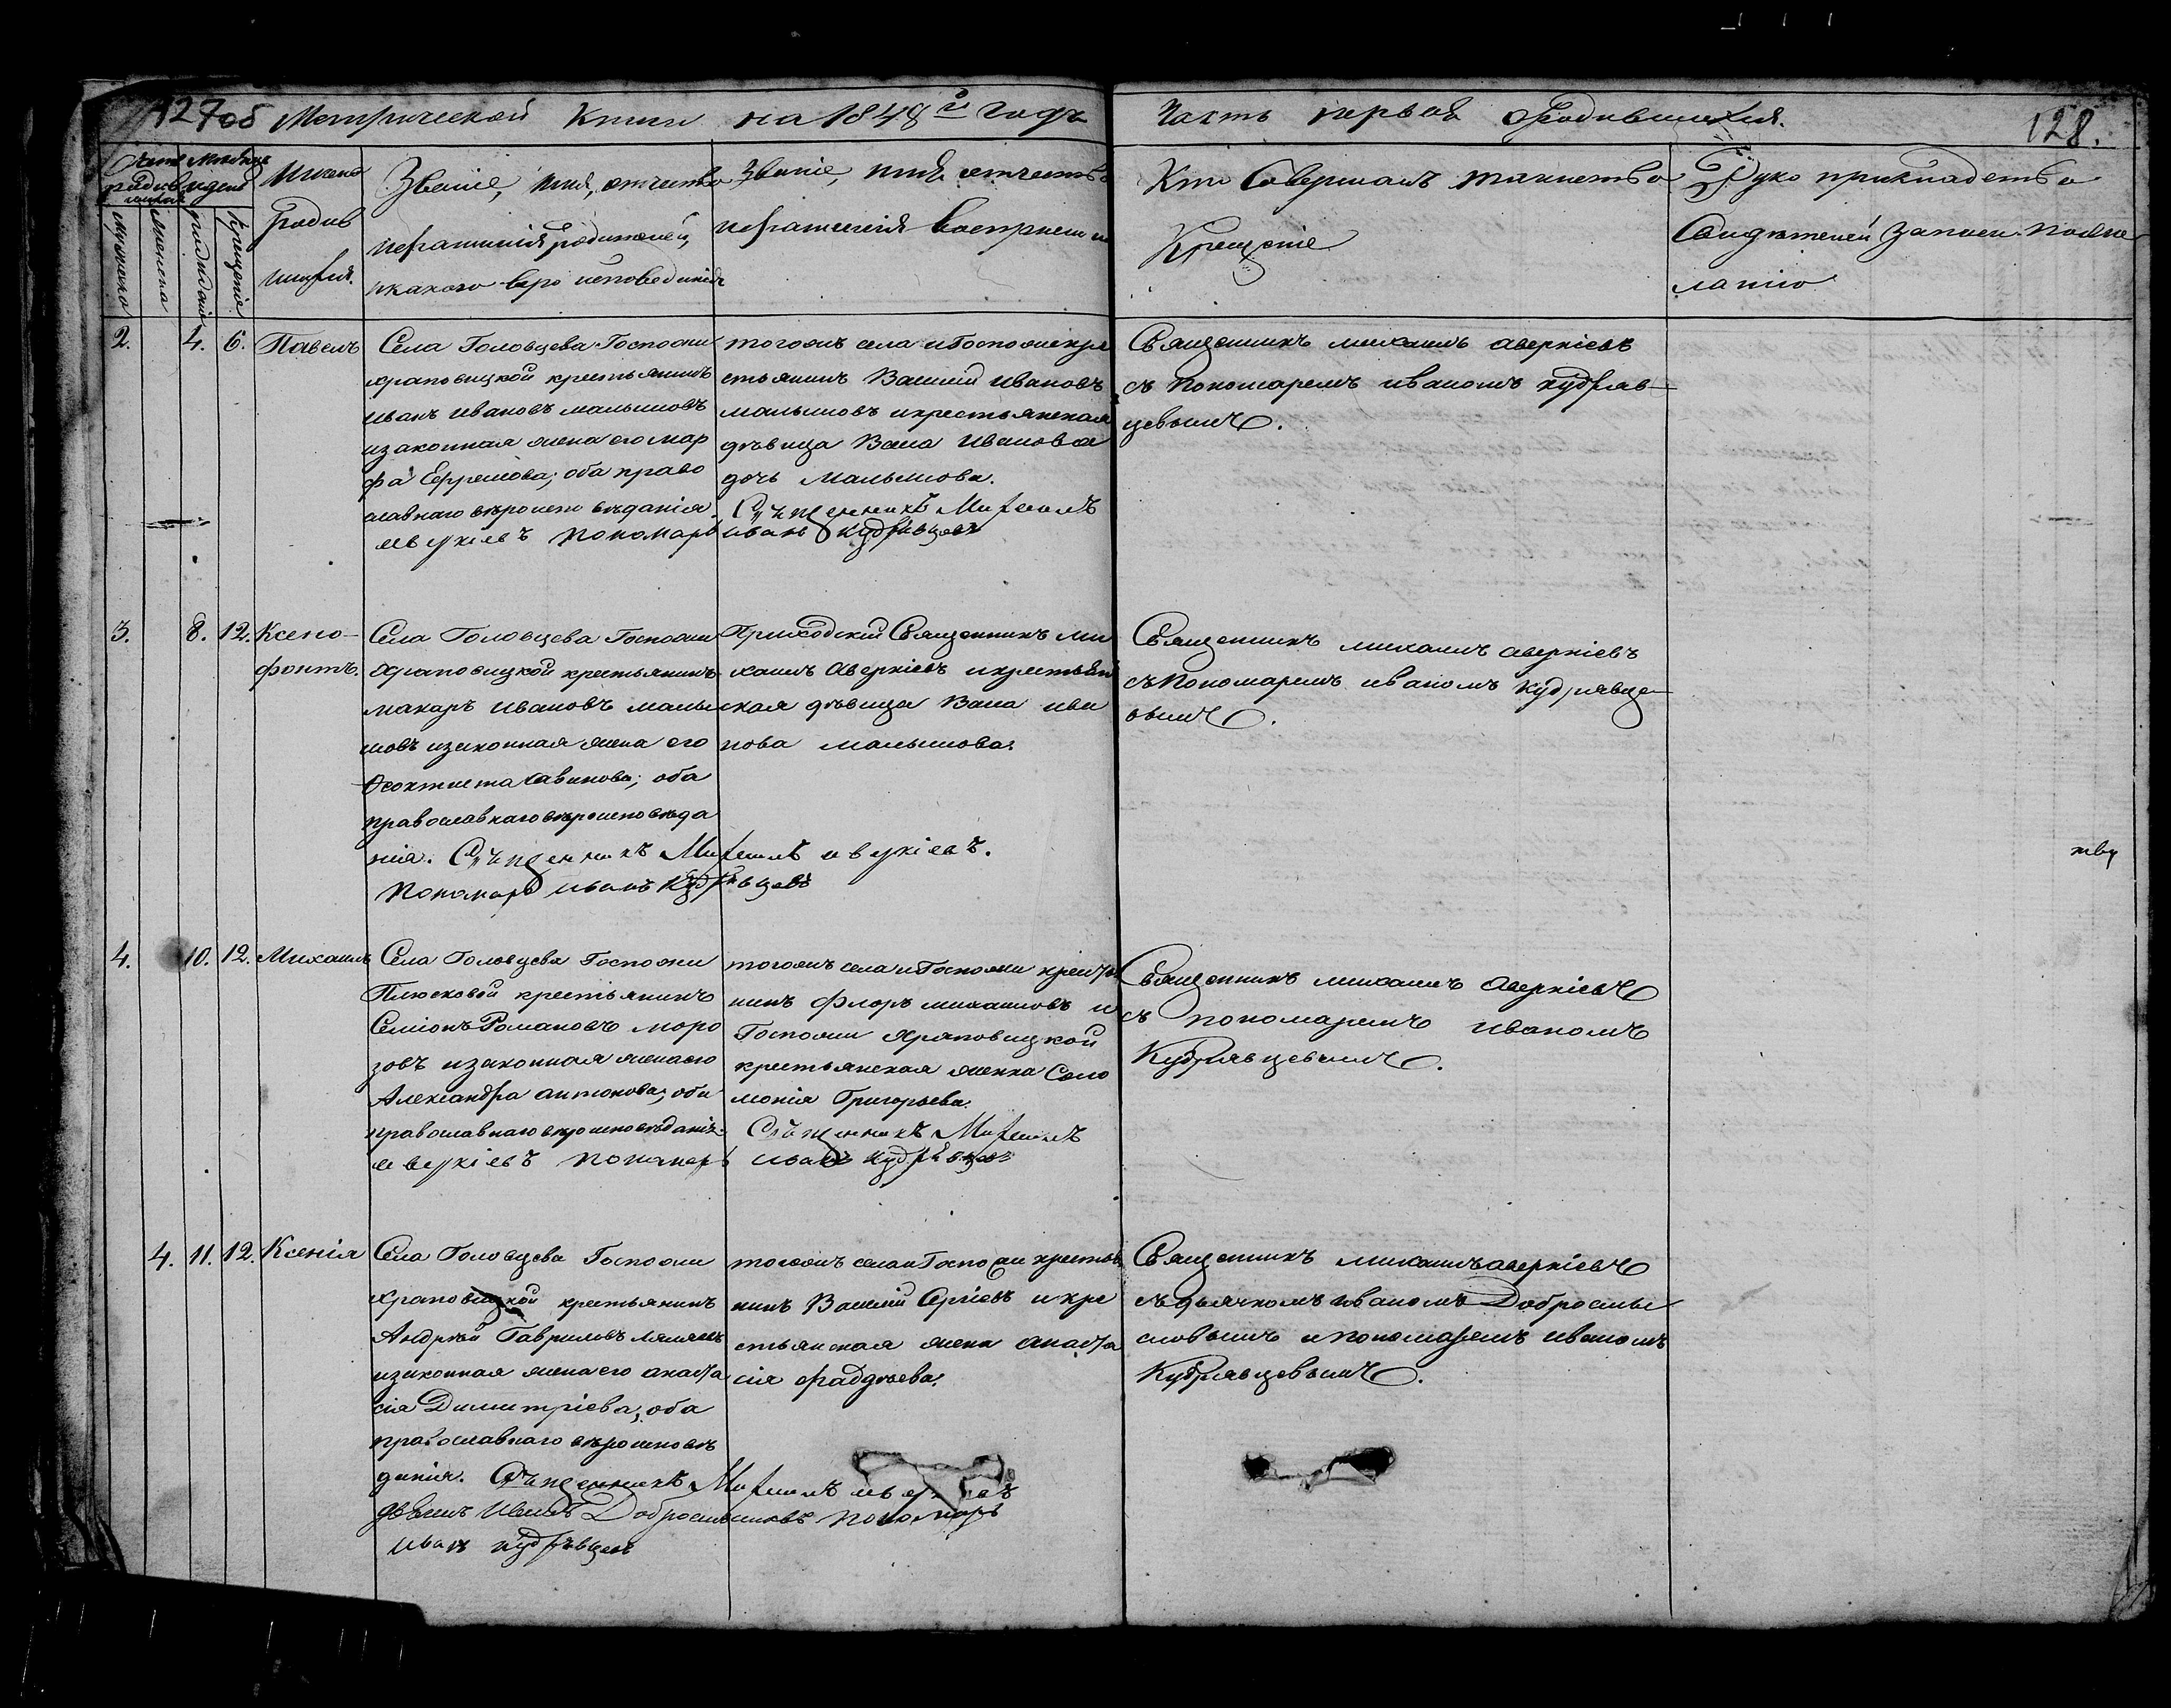 127об Метрической Книги на 1848й годъ
Часть первая о родившихся.
128.
Мужеска
Женска
Рожденія
Крещенія
Имена
родив
шихся.
Званіе, имя, отчество
и фамилія родителей,
и какого веро исповеданія
Званіе, имя отчество
и фамилія восприем
Кто Совершалъ таинство
Крещенія
Руко прикладство
Свидѣтелей записи по же
ланію
2. 4. 6. Павелъ
Села Головцева Госпожи
храповицкой крестьянинъ
иванъ ивановъ малышовъ
и законная жена его мар
фа Ефремова; оба право
славнаго вѣроисповѣданія.
тогожъ села и Госпожи кре
стьянинъ Василій ивановъ
малышовъ и крестьянская
дѣвица Васа иванова
дочь малышова.
Священникъ Михаилъ
аверкіевъ пономарь иванъ кудрявцевъ
Священникъ михаилъ аверкіевъ
съ пономаремъ иваномъ кудряв-
цевымъ.
3. 8. 12. Ксено-
фонтъ.
Села Головцева Госпожи
храповицкой крестьянинъ
макаръ ивановъ малы
шовъ и законная жена его
Ѳеоктиста Савинова; оба
православнаго вѣроисповѣда
нія. Священникъ Михаилъ аверкіевъ.
Пономарь иванъ Кудрявцевъ
Приходскій Священникъ ми
хаилъ аверкіевъ и крестьян
ская дѣвица Васа ива
нова малышова.
Священникъ михаилъ аверкіевъ
съ пономаремъ иваномъ кудрявце-
вымъ.
4. 10. 12. Михаилъ
Села Головцева Госпожи
Плюсковой крестьянинъ
Семіонъ Романовъ моро
зовъ и законная жена его
Александра антонова; оба
православнаго вѣроисповѣданія.
тогожъ села и Госпожи крестья
нинъ Флоръ михаиловъ и
Госпожи Храповицкой
крестьянская женка Соло
монія Григорьева.
Священникъ Михаилъ
аверкіевъ пономарь иванъ кудрявцевъ
Священникъ михаилъ аверкіевъ
съ пономаремъ иваномъ
Кудрявцевымъ.
4. 11. 12. Ксенія
Села Головцева Госпожи
храповицкой крестьянинъ
Андрѣй Гавриловъ
и законная жена его анаста
сія Димитріева; оба
православнаго вѣроисповѣ
данія. Священникъ Михаилъ
дьячекъ Иванъ Добросмысловъ пономарь
иванъ кудрявцевъ
тогожъ села и Госпожи крестья
нинъ Василій Сергіевъ и кре
стьянская жена анаста
сія фаддѣева.
Священникъ михаилъ аверкіевъ
съ дьячкомъ иваномъ Добросмы
словымъ и пономаремъ иваномъ
Кудрявцевымъ.